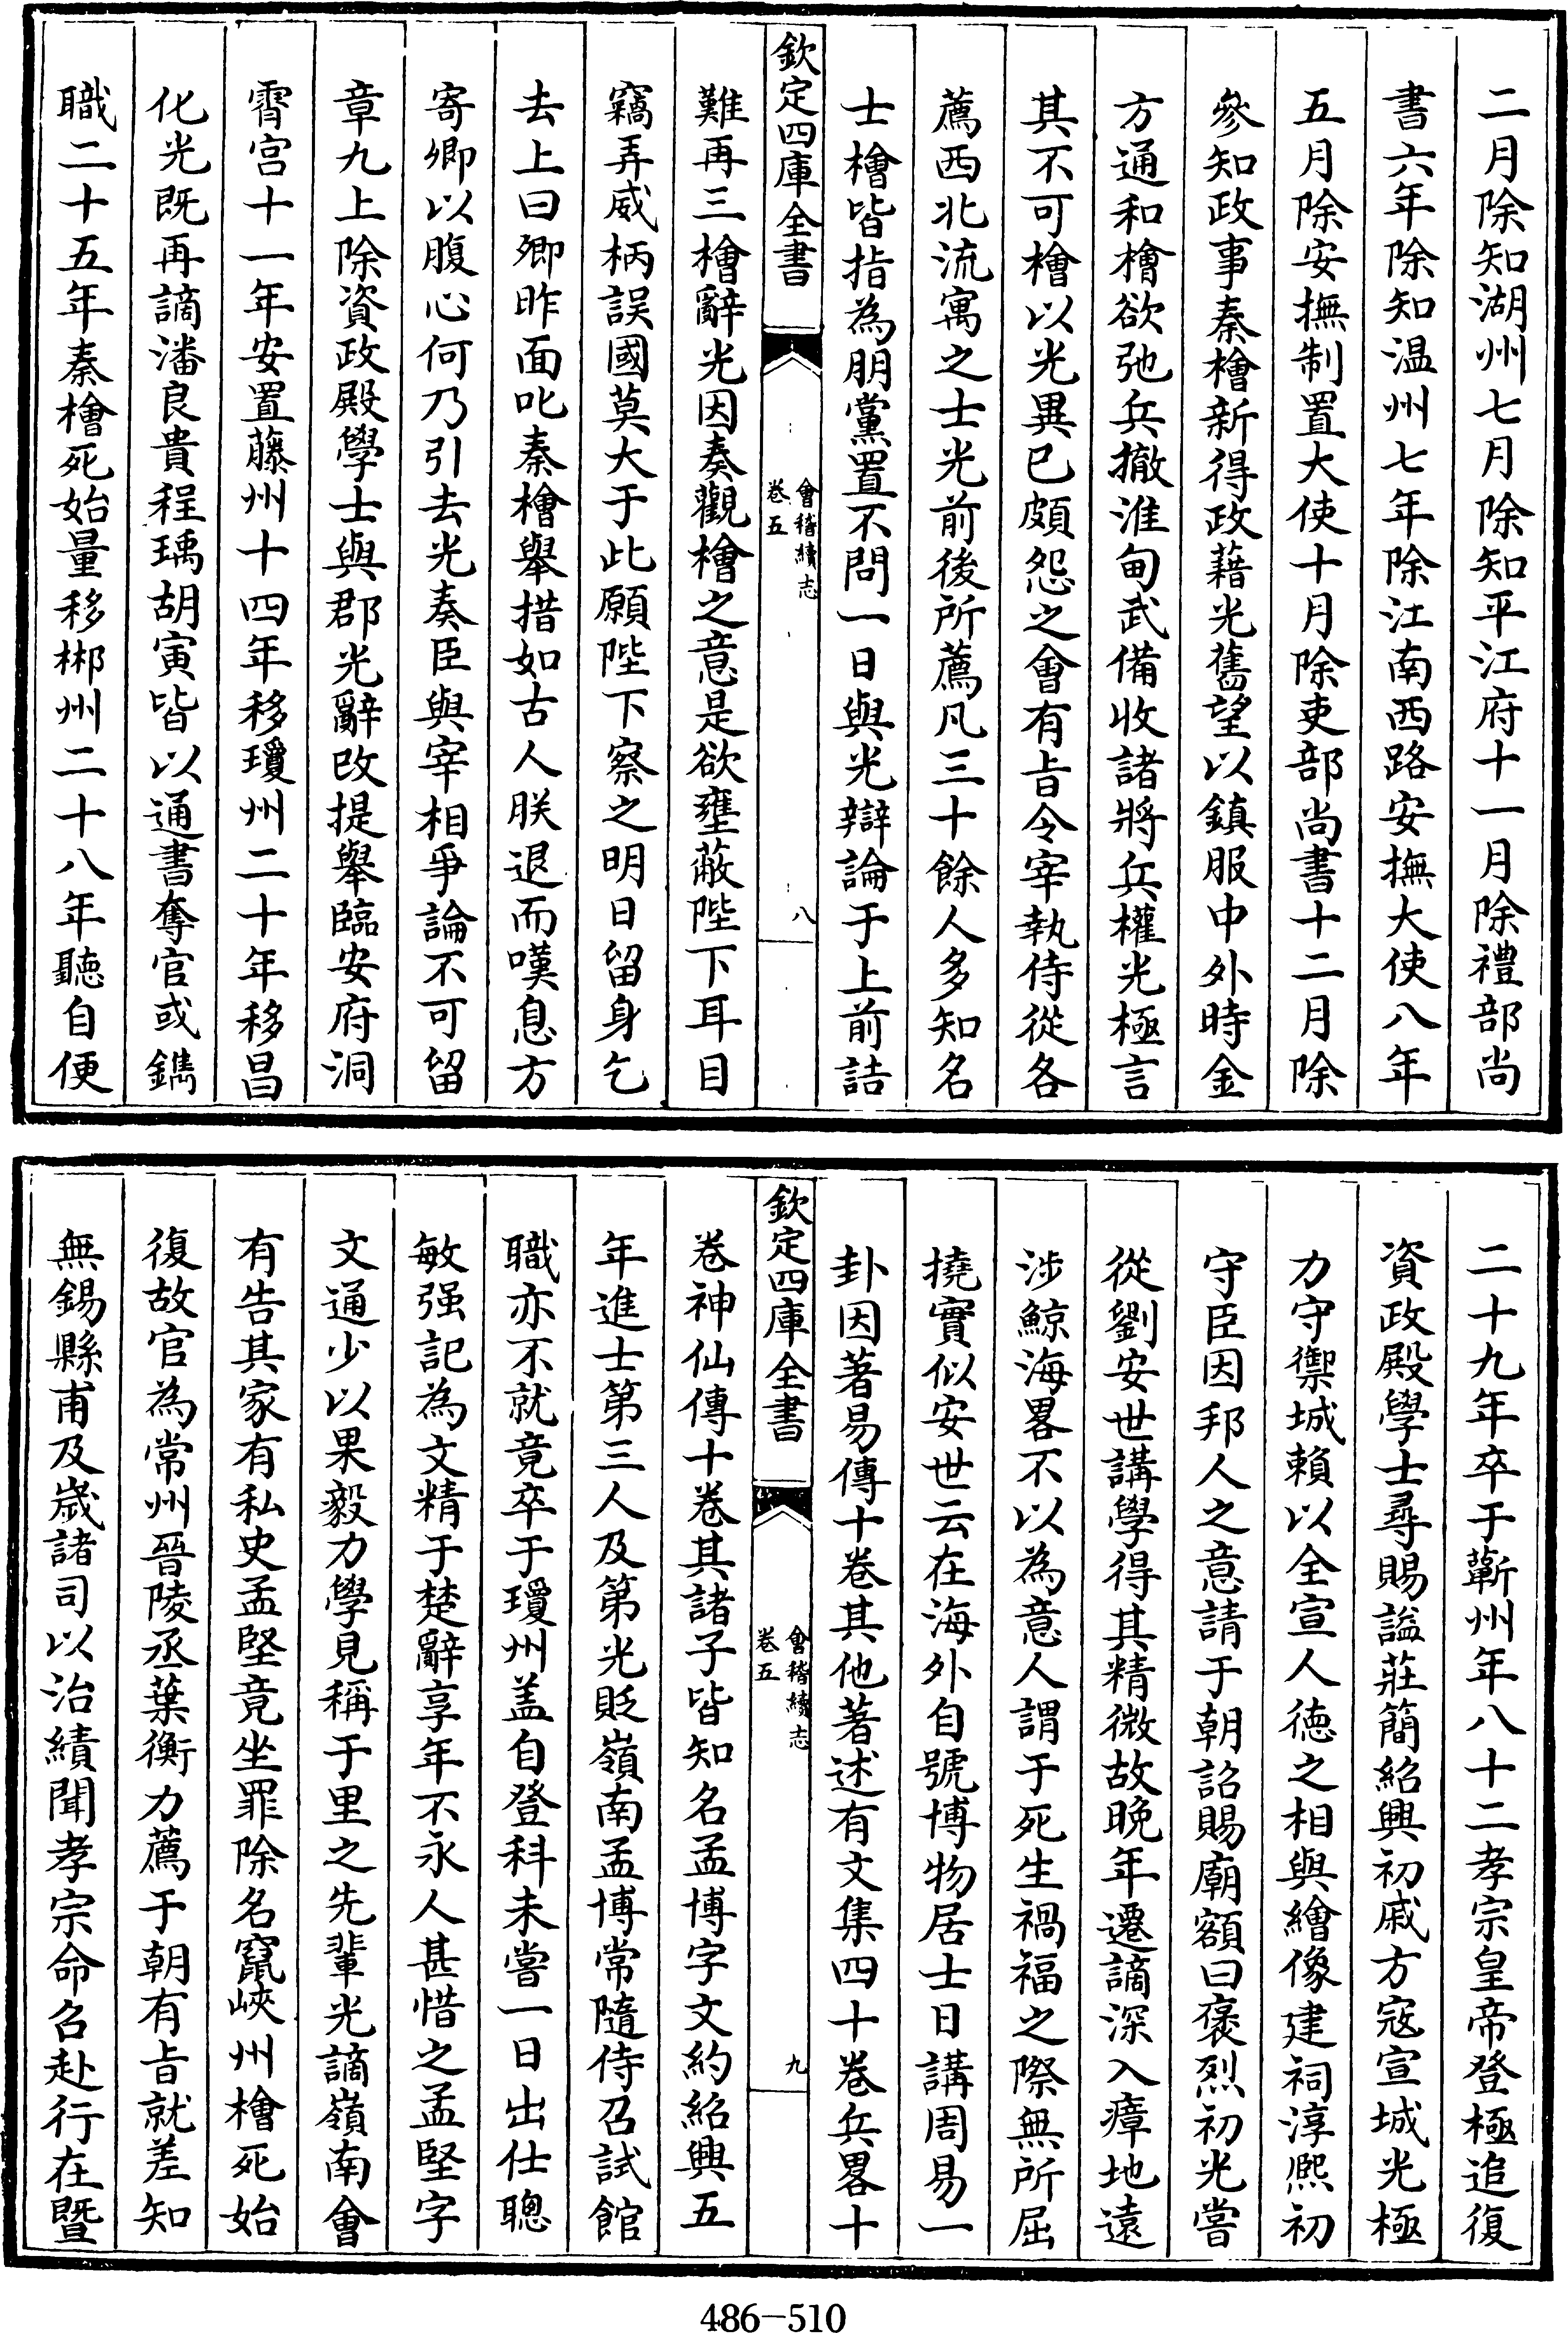 二月除知湖州七月除知平江府十一月除禮部尚
書六年除知温州七年除江南西路安撫大使八年
五月除安撫制置大使十月除吏部尚書十二月除
參知政事秦檜新得政藉光舊望以鎮服中外時金
方通和檜欲弛兵撤淮甸武備收諸將兵權光極言
其不可檜以光異已頗怨之會有㫖令宰執侍從各
薦西北流寓之士光前後所薦凡三十餘人多知名
士檜皆指為朋黨置不問一日與光辯論于上前詰
欽定四庫全書
會稽續志
卷五
八
難再三檜辭光因奏觀檜之意是欲壅蔽陛下耳目
竊弄威柄誤國莫大于此願陛下察之明日留身乞
去上曰卿昨面叱秦檜舉措如古人朕退而嘆息方
寄卿以腹心何乃引去光奏臣與宰相爭論不可留
章九上除資政殿學士與郡光辭改提舉臨安府洞
霄宫十一年安置藤州十四年移瓊州二十年移昌
化光既再謫潘良貴程瑀胡寅皆以通書奪官或鐫
職二十五年秦檜死始量移郴州二十八年聽自便
二十九年卒于蘄州年八十二孝宗皇帝登極追復
資政殿學士尋賜諡莊簡紹興初戚方宼宣城光極
力守禦城賴以全宣人德之相與繪像建祠淳熈初
守臣因邦人之意請于朝詔賜廟額曰褒烈初光嘗
從劉安世講學得其精微故晚年遷謫深入瘴地遠
涉鯨海畧不以為意人謂于死生禍福之際無所屈
撓實似安世云在海外自號博物居士日講周易一
卦因著易傳十卷其他著述有文集四十卷兵畧十
欽定四庫全書
會稽續志
卷五
九
卷神仙傳十卷其諸子皆知名孟博字文約紹興五
年進士第三人及第光貶嶺南孟博常隨侍召試館
職亦不就竟卒于瓊州盖自登科未嘗一日出仕聰
敏强記為文精于楚辭享年不永人甚惜之孟堅字
文通少以果毅力學見稱于里之先輩光謫嶺南會
有告其家有私史孟堅竟坐罪除名竄峽州檜死始
復故官為常州晉陵丞葉衡力薦于朝有㫖就差知
無錫縣甫及歲諸司以治績聞孝宗命召赴行在暨
486-510